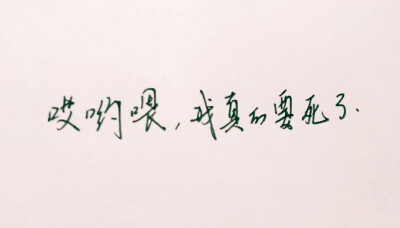 哎哟喂，我真的要死了.